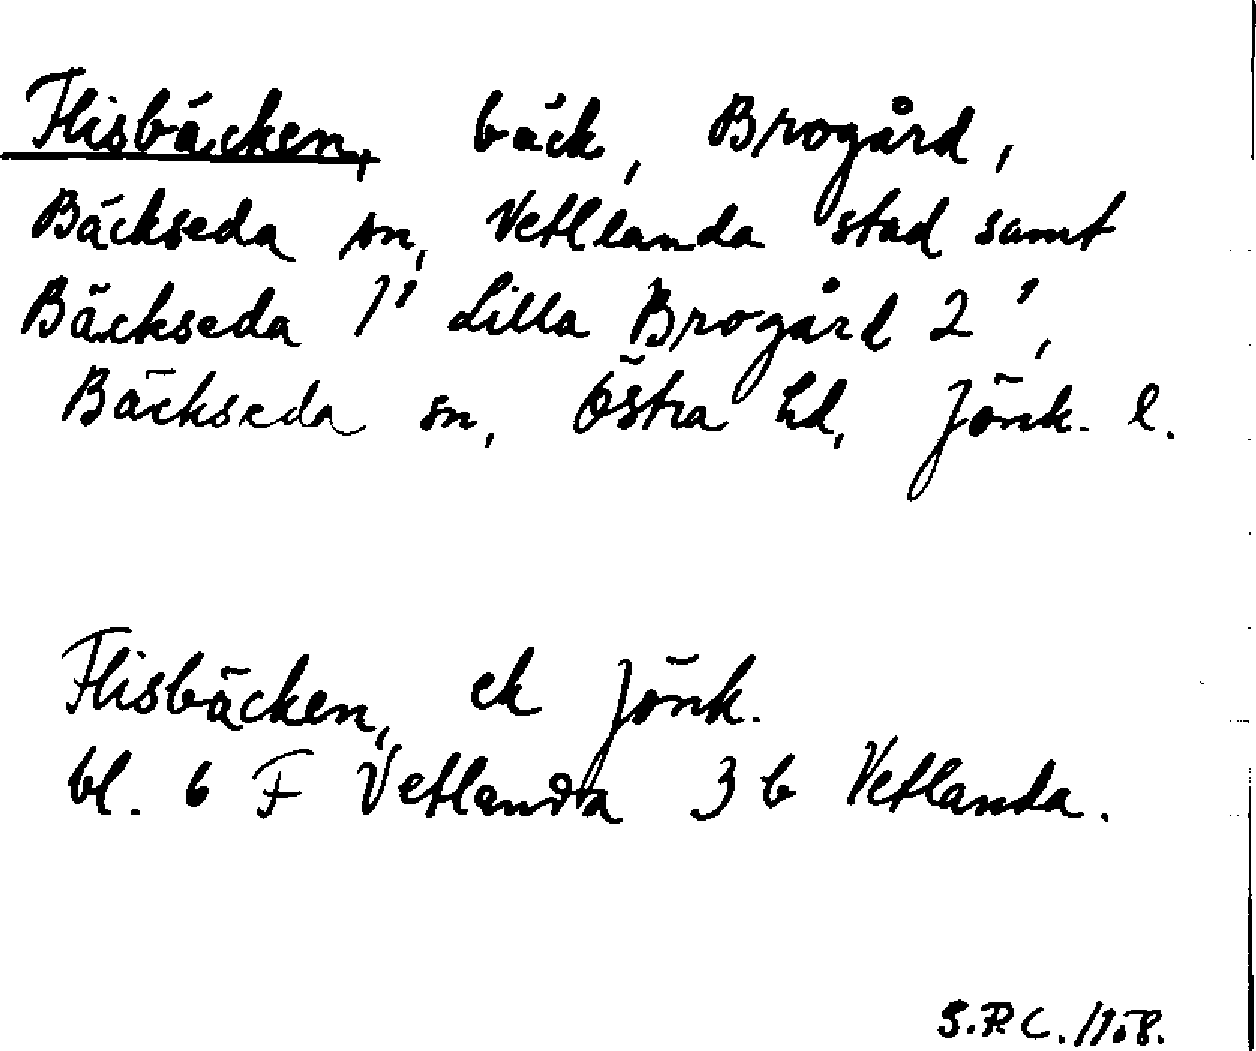 Flisbäcken, bäck, Brogård,
Bäckseda sn, Vetlanda stad samt
Bäckseda 1' Lilla Brogård 2',
Bäckseda sn, Östra hd, Jönk. l.
Flisbäcken, ek Jönk.
bl. 6 F Vetlanda 3 b Vetlanda.
S.R.C. 1958.